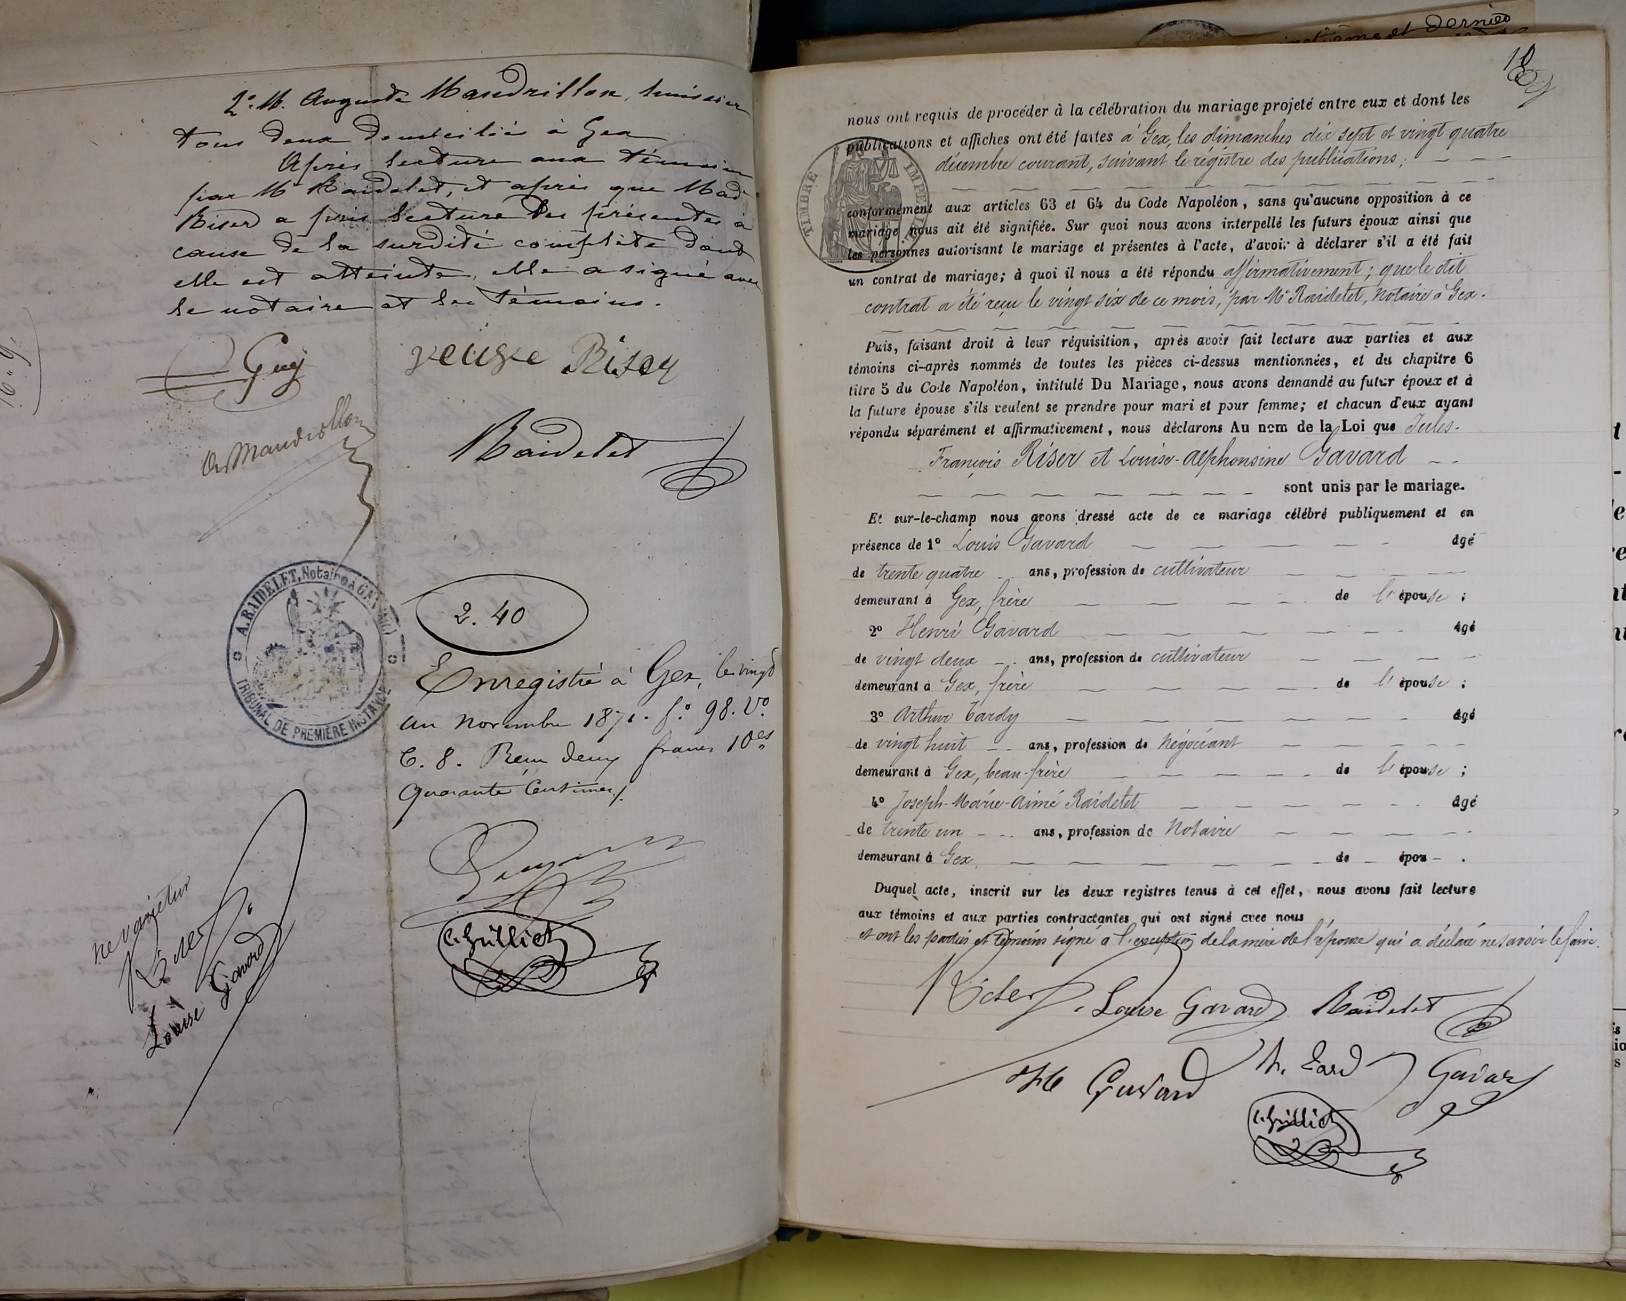 2° M. Auguste Mandrillon, huissier
tous deux domiciliés à Gex
Après lecture aux témoins
par Me Raidelet, et après que Made
Riser a pris lecture des présentes à
cause de la surdité complète dont
elle est atteinte, elle a signé avec
le notaire et les témoins.
Guy
veuve Riser
Ate Mandrillon
Raidelet
A. RAIDELET, Notaire A GEX (AIN)
TRIBUNAL DE PREMIÈRE INSTANCE
2.40
Enregistré à Gex, le vingt
un novembre 1871. f° 98. Vo.
C. 8. Reçu deux francs 10es
quarante centimes.
C. Grilliet
ne varietur
Riser
Louise Gavard
et dernier
18
nous ont requis de procéder à la célébration du mariage projeté entre eux et dont les
publications et affiches ont été faites à Gex, les dimanches dix sept et vingt quatre
décembre courant, suivant le régistre des publications;
TIMBRE IMPE
conformément aux articles 63 et 64 du Code Napoléon, sans qu'aucune opposition à ce
mariage nous ait été signifiée. Sur quoi nous avons interpellé les futurs époux ainsi que
les personnes autorisant le mariage et présentes à l'acte, d'avoir à déclarer s'il a été fait
un contrat de mariage; à quoi il nous a été répondu affirmativement; que le dit
contrat a été reçu le vingt six de ce mois, par Me Raidelet, notaire à Gex.
Puis, faisant droit à leur réquisition, après avoir fait lecture aux parties et aux
témoins ci-après nommés de toutes les pièces ci-dessus mentionnées, et du chapitre 6
titre 5 du Code Napoléon, intitulé Du Mariage, nous avons demandé au futur époux et à
la future épouse s'ils veulent se prendre pour mari et pour femme; et chacun d'eux ayant
répondu séparément et affirmativement, nous déclarons Au nom de la Loi que Jules-
François Riser et Louise-Alphonsine Gavard
sont unis par le mariage.
Et sur-le-champ nous avons dressé acte de ce mariage célébré publiquement et en
présence de 1° Louis Gavard âgé
de trente quatre ans, profession de cultivateur
demeurant à Gex, frère de l'épouse;
2° Henri Gavard âgé
de vingt deux ans, profession de cultivateur
demeurant à Gex, frère de l'épouse;
3° Arthur Tardy âgé
de vingt huit ans, profession de Négociant
demeurant à Gex, beau-frère de l'épouse;
4° Joseph-Marie-Aimé Raidelet âgé
de trente un ans, profession de Notaire
demeurant à Gex, de épou .
Duquel acte, inscrit sur les deux registres tenus à cet effet, nous avons fait lecture
aux témoins et aux parties contractantes qui ont signé avec nous
et ont les parties et témoins signé à l'exception de la mère de l'épouse qui a déclaré ne savoir le faire.
Riser Louise Gavard Raidelet
H Gavard A. Tardy Gavard
C. Grilliet